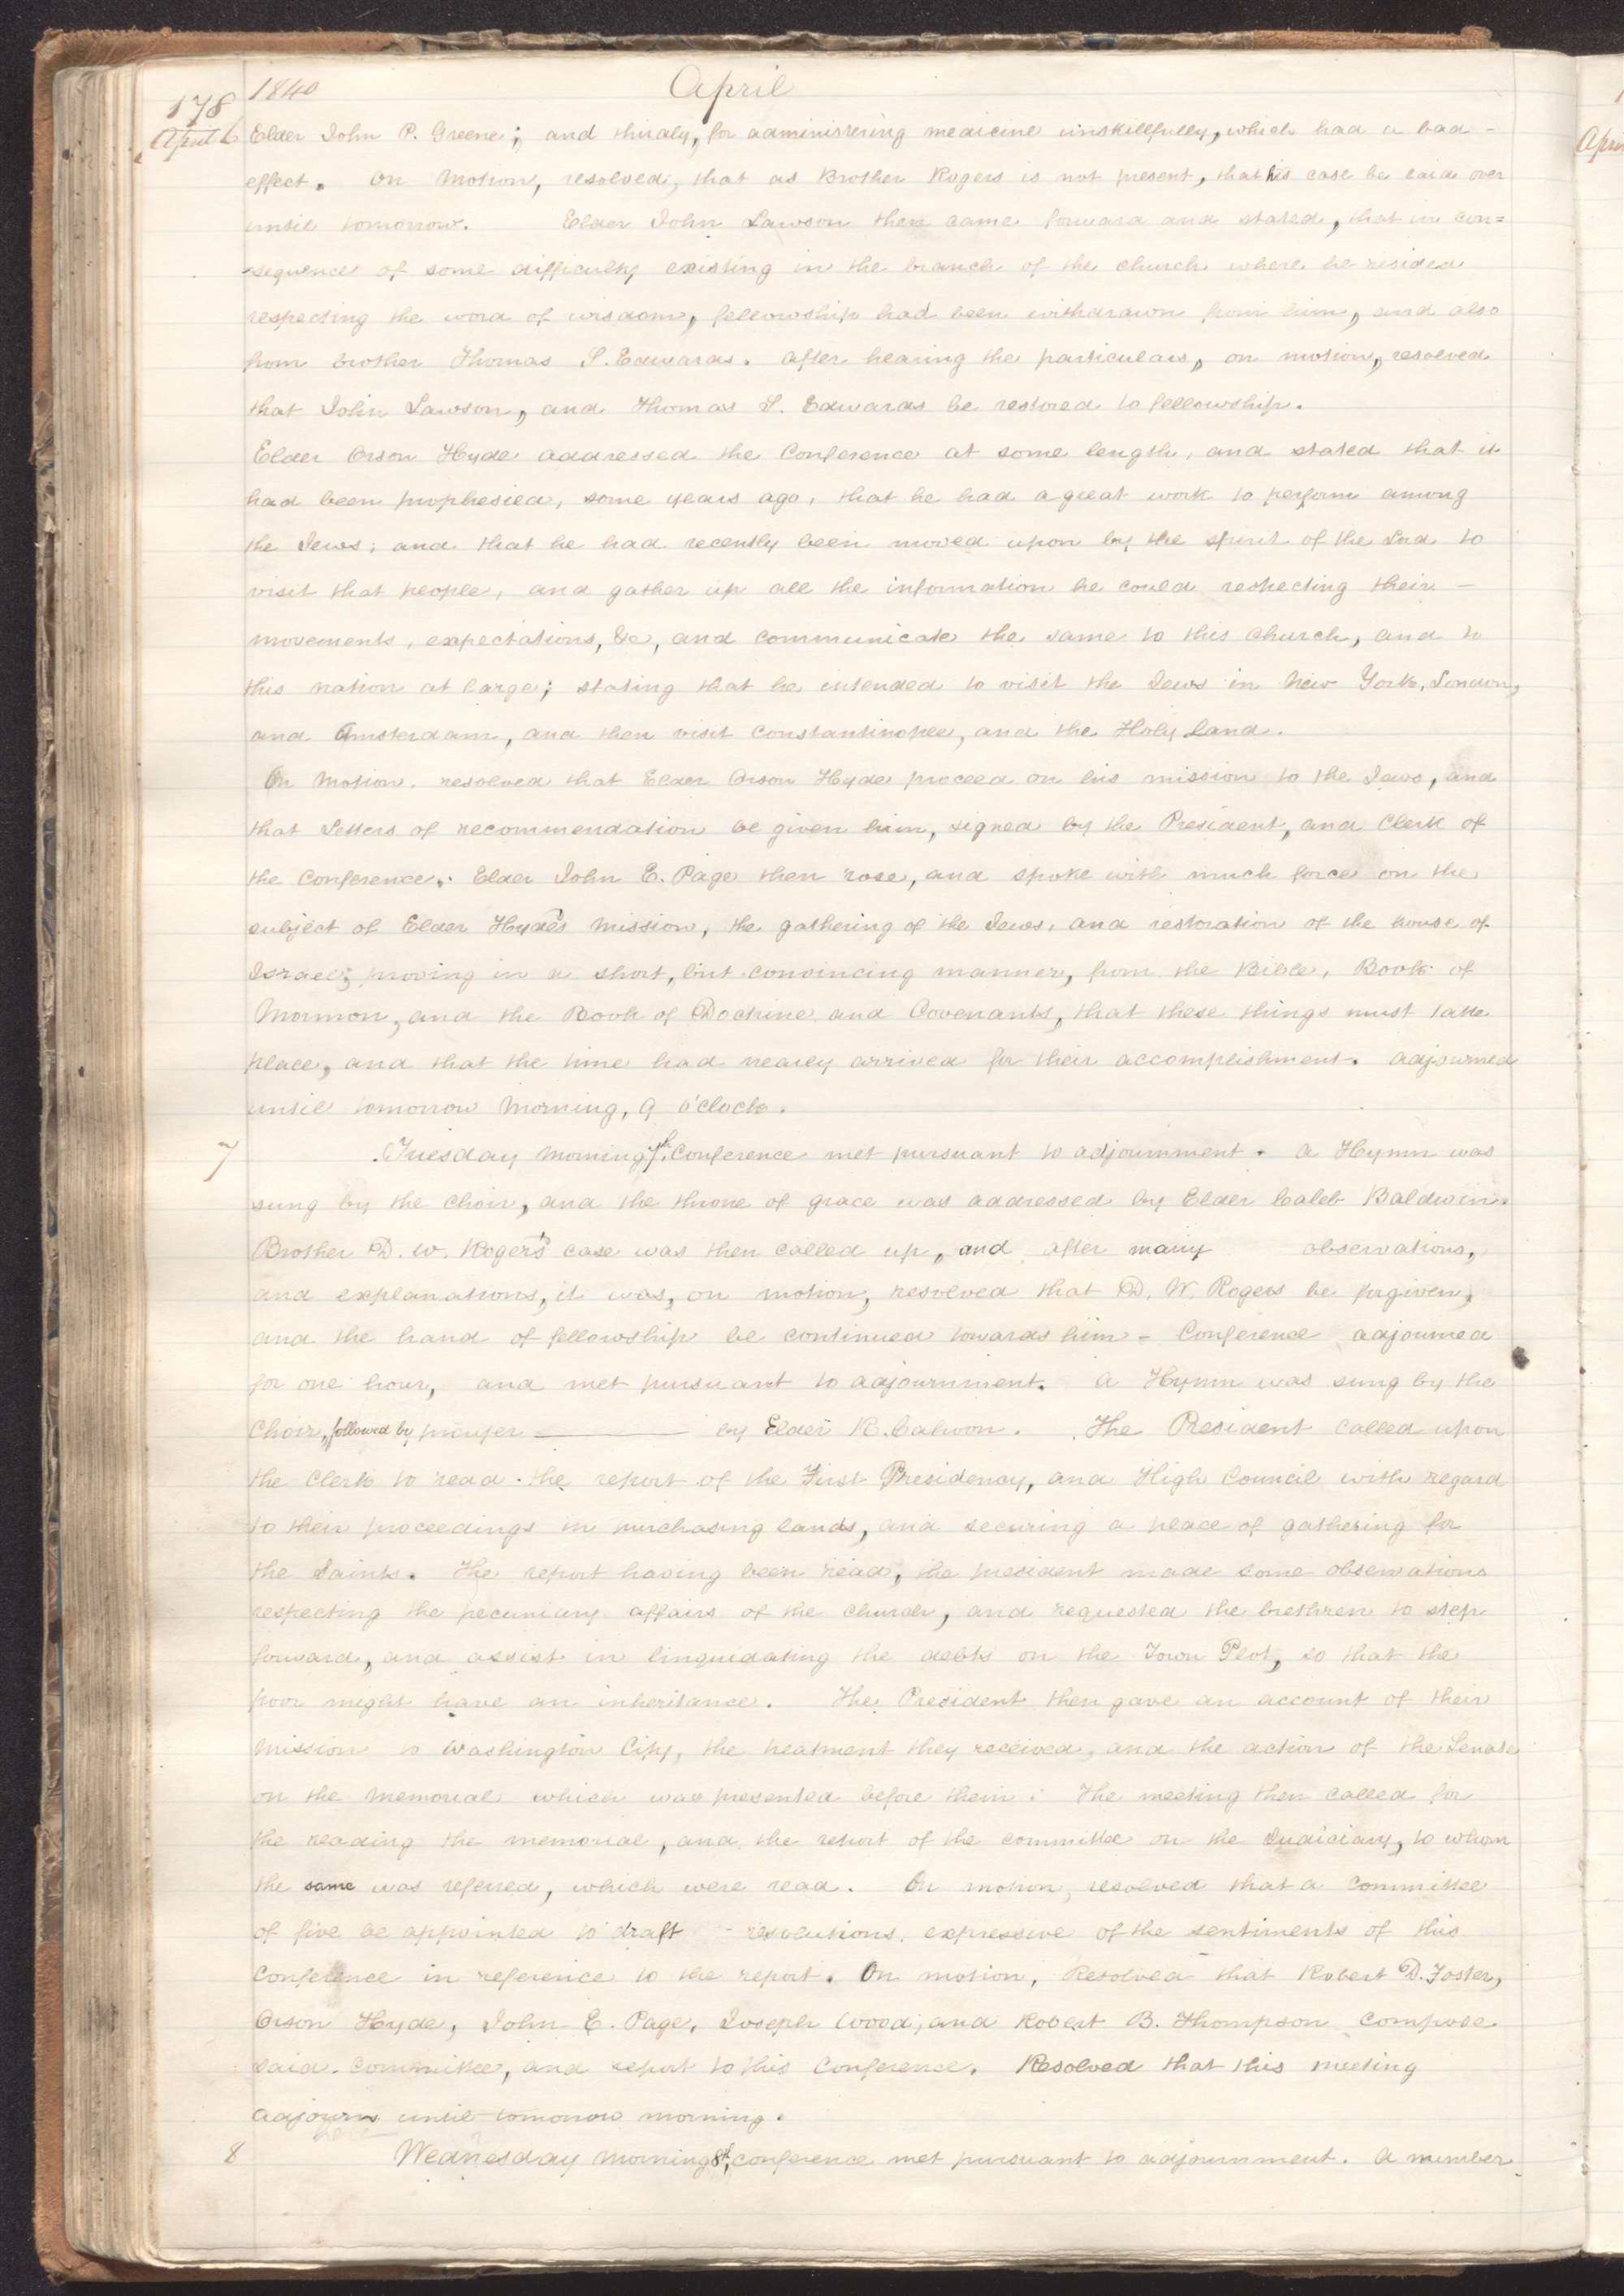 178 1840 April
April 6 Elder John P. Greene; and thirdly, for administering medicine unskillfully, which had a bad -
effect. On Motion, resolved, that as Brother Rogers is not present, that his case be laid over
until tomorrow. Elder John Lawson then came forward and stated, that in con=
=sequence of some difficulty existing in the branch of the church where he resided
respecting the word of wisdom, fellowship had been withdrawn from him, and also
from brother Thomas S. Edwards. After hearing the particulars, on motion, resolved
that John Lawson, and Thomas S. Edwards be restored to fellowship.
Elder Orson Hyde addressed the Conference at some length, and stated that it
had been prophesied, some years ago, that he had a great work to perform among
the Jews; and that he had recently been moved upon by the spirit of the Lord to
visit that people, and gather up all the information he could respecting their -
movements, expectations, &c, and communicate the same to this church, and to
this nation at large; stating that he intended to visit the Jews in New York, London,
and Amsterdam, and then visit Constantinople, and the Holy Land.
On Motion. resolved that Elder Orson Hyde proceed on his mission to the Jews, and
that Letters of recommendation be given him, signed by the President, and Clerk of
the Conference. Elder John E. Page then rose, and spoke with much force on the
subject of Elder Hyde's Mission, the gathering of the Jews, and restoration of the house of
Israel; proving in a short, but convincing manner, from the Bible, Book of
Mormon, and the Book of Doctrine and Covenants, that these things must take
place, and that the time had nearly arrived for their accomplishment. adjourned
until tomorrow Morning, 9 o'clock.
7 Tuesday morning 7th. Conference met pursuant to adjournment. A Hymn was
sung by the Choir, and the throne of grace was addressed by Elder Caleb Baldwin.
Brother D. W. Rogers's case was then called up, and after many observations,
and explanations, it was, on motion, resolved that D. W. Rogers be forgiven,
and the hand of fellowship be continued towards him - Conference adjourned
for one hour, and met pursuant to adjournment. A Hymn was sung by the
Choir, followed by prayer by Elder R. Cahoon. The President called upon
the Clerk to read the report of the First Presidency, and High Council with regard
to their proceedings in purchasing lands, and securing a place of gathering for
the Saints. The report having been read, the president made some observations
respecting the pecuniary affairs of the church, and requested the brethren to step
forward, and assist in linquidating the debts on the Town Plot, so that the
poor might have an inheritance. The President then gave an account of their
Mission to Washington City, the treatment they received, and the action of the Senate
on the Memorial which was presented before them: The meeting then called for
the reading the memorial, and the report of the committee on the Judiciary, to whom
the same was referred, which were read. On motion, resolved that a committee
of five be appointed to draft resolutions, expressive of the sentiments of this
Conference in reference to the report. On motion, Resolved that Robert D. Foster,
Orson Hyde, John E. Page, Joseph Wood, and Robert B. Thompson compose
said Committee, and report to this Conference. Resolved that this meeting
adjourn until tomorrow morning.
8 Wednesday Morning 8th, conference met pursuant to adjournment. A number